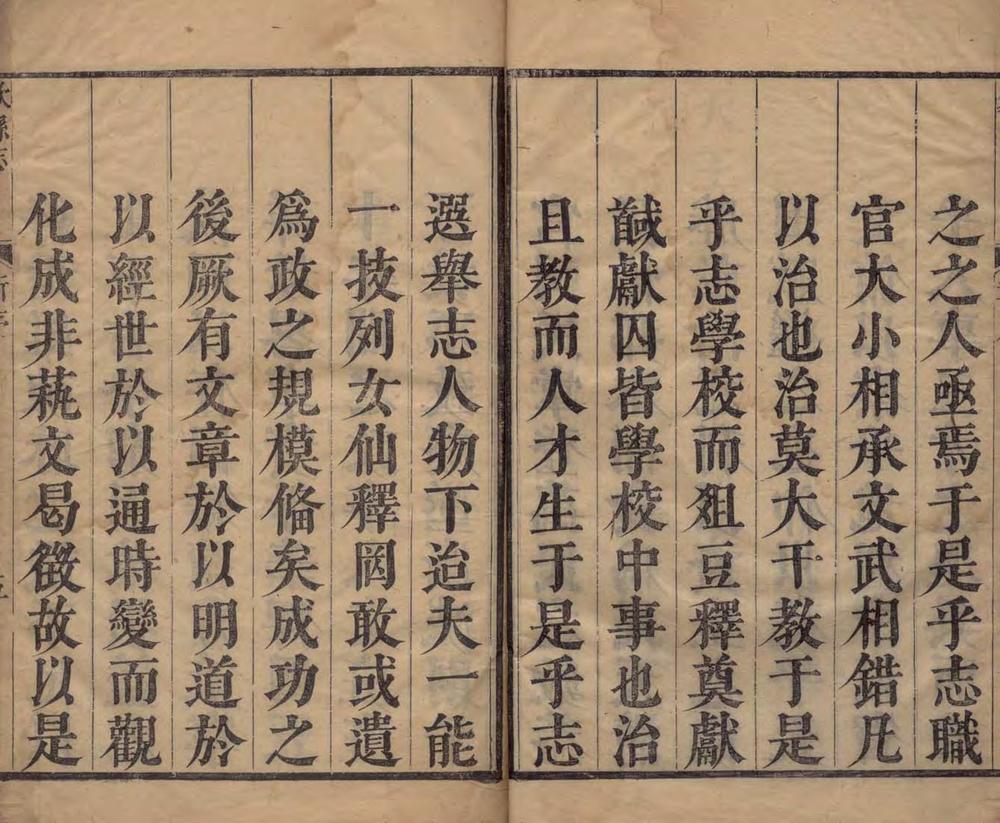 之之人亟焉于是乎志職
官大小相承文武相錯凡
以治也治莫大于教于是
乎志學校而爼豆釋奠獻
馘獻囚皆學校中事也治
且教而人才生于是乎志
選舉志人物下迨夫一能
一技列女仙釋罔敢或遺
爲政之規模俻矣成功之
後厥有文章於以明道於
以經世於以通時變而觀
化成非蓺文曷徵故以是
縣志